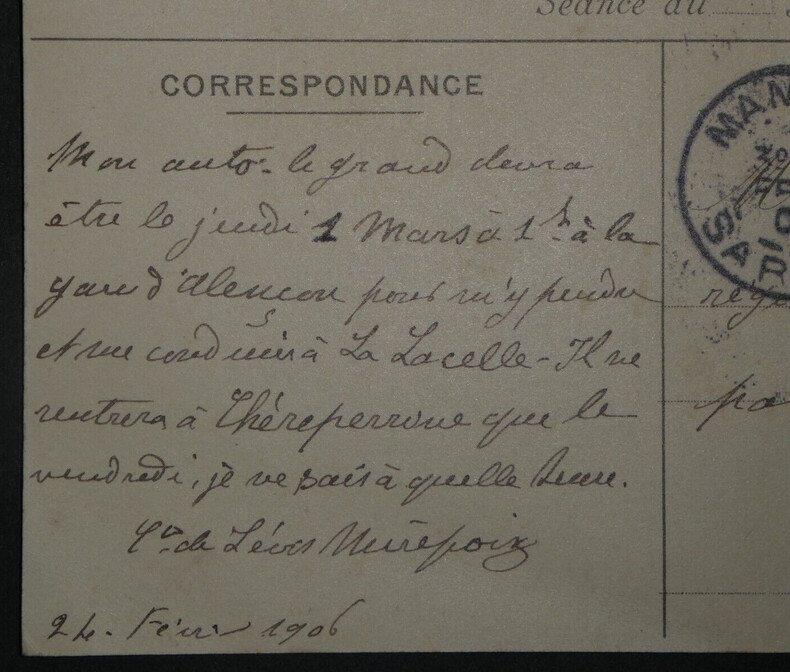 Séance du
CORRESPONDANCE
Mon auto - le grand devra
être le jeudi 1 Mars à 1h à la
gare d'Alençon pour m'y prendre
et me conduire à La Lacelle - Il ne
rentrera à Chèreperrine que le
vendredi, je ne sais à quelle heure.
Cte de Lévis Mirepoix
24 - Févri 1906
MAM
SAR